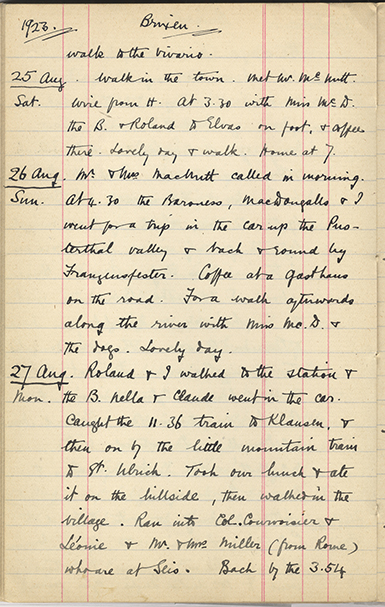 1923. Brixen.
walk to the vivario.
25 Aug. walk in the town. Met Mr. McNutt.
Sat. wire from H. At 3.30 with Miss McD.
the B. & Roland to Elvas on foot, & coffee
there. Lovely day & walk. Home at 7.
26 Aug. Mr. & Mrs MacNutt called in morning.
Sun. At 4.30 the Baroness, MacDougalls & I
went for a trip in the car up the Pus-
terthal valley & back & round by
Franzensfester. Coffee at a gasthaus
on the road. For a walk afterwards
along the river with Miss Mc.D. &
the dogs. Lovely day.
27 Aug. Roland & I walked to the station &
Mon. the B. Nella & Claude went in the car.
Caught the 11.36 train to Klausen, &
then on by the little mountain train
to St. Ulrich. Took our lunch & ate
it on the hillside, then walked in the
village. Ran into Col. Courvoisier &
Léonie & Mr. & Mrs Miller (from Rome)
who are at Seis. Back by the 3.54